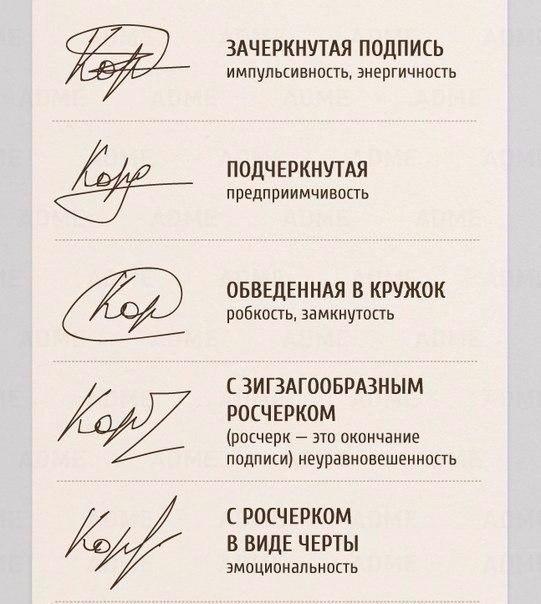 Кор
ЗАЧЕРКНУТАЯ ПОДПИСЬ
импульсивность, энергичность
Кор
ПОДЧЕРКНУТАЯ
предприимчивость
Кор
ОБВЕДЕННАЯ В КРУЖОК
робкость, замкнутость
Кор
С ЗИГЗАГООБРАЗНЫМ
РОСЧЕРКОМ
(росчерк — это окончание
подписи) неуравновешенность
Кор
С РОСЧЕРКОМ
В ВИДЕ ЧЕРТЫ
эмоциональность
ADME